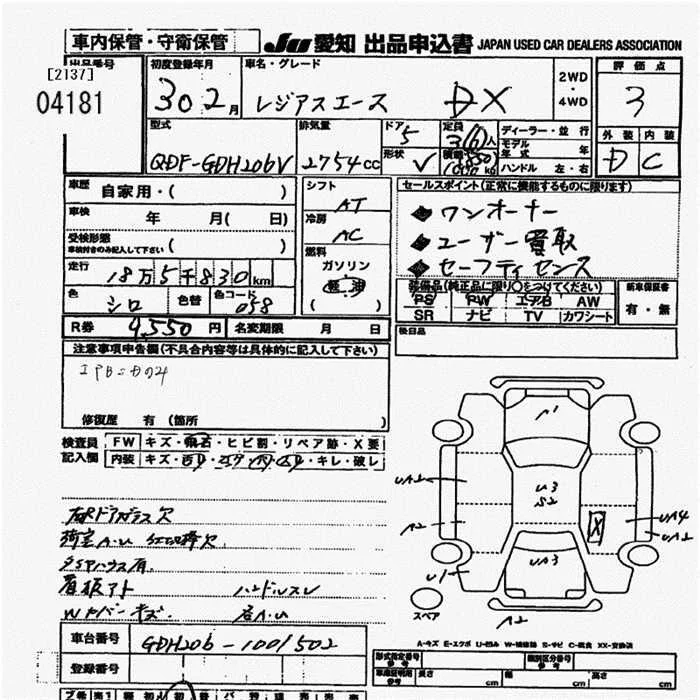 車内保管・守衛保管
JU 愛知 出品申込書 JAPAN USED CAR DEALERS ASSOCIATION
出品番号
[2137]
04181
初度登録年月
30 2月
車名・グレード
レジアスエース DX
2WD・4WD
評価点
3
外装 内装
D C
型式
QDF-GDH206V
排気量
2754cc
ドア 5
形状 V
定員 3(6)人
積載
ディーラー・並行
モデル年式 年
ハンドル 左・右
車歴
自家用・( )
車検 年 月( 日)
受検形態
車検付きのみ記入して下さい ( )
走行 18万5千830km
色 シロ 色替 色コード 058
R券 9,550円 名変期限 月 日
シフト AT
冷房 AC
燃料
ガソリン
軽油
( )
セールスポイント(正常に機能するものに限ります)
ワンオーナー
ユーザー買取
セーフティセンス
装備品(純正品に限り○をつけてください)
PS PW エアB AW
SR ナビ TV カワシート
新車保証書
有・無
後日品
注意事項申告欄(不具合内容等は具体的に記入して下さい)
修復歴 有 (箇所 )
検査員記入欄
FW キズ・飛石・ヒビ割・リペア跡・X要
内装 キズ・キレ・破レ
タイヤハウス有
看板アト ハンドルスレ
WFバーキズ
UA2
A2
U1
A1
U3
S2
UA3
X
UA4
UA2
A2
スペア
A=キズ E=エクボ U=凹み W=補修跡 S=サビ C=腐食 XX=交換済
車台番号 GDH206-1001502
登録番号
形式指定番号 参考
類別区分番号 参考
車庫証明用 参考 長さ cm 幅 cm 高さ cm